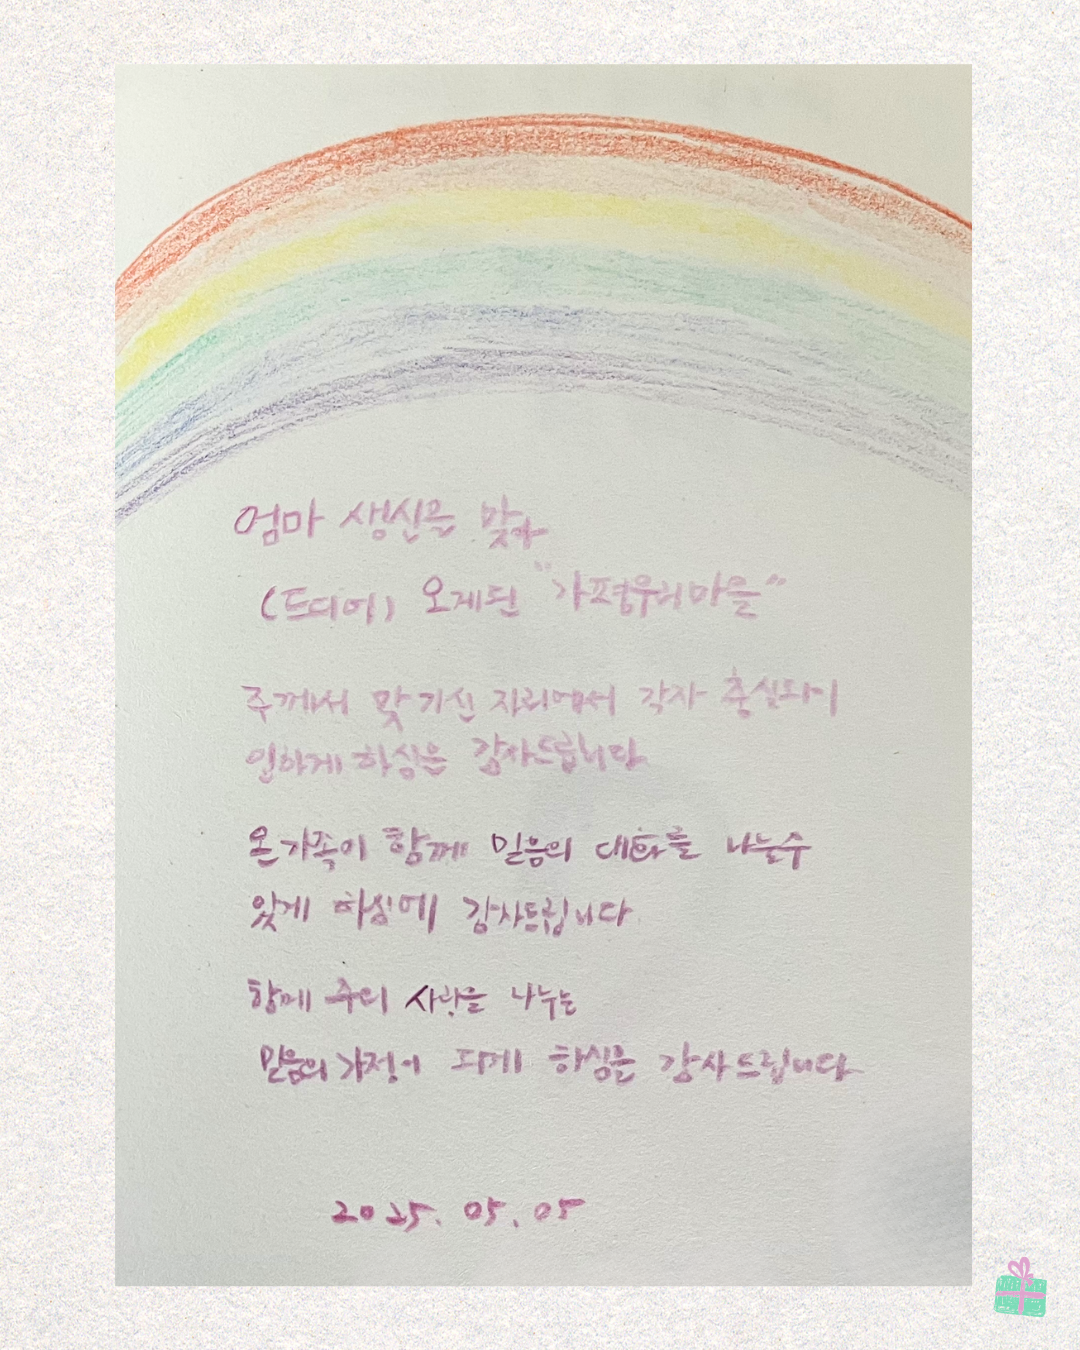 엄마 생신을 맞아
(드디어) 오게된 "가평우리마을"
주께서 맟기신 자리에서 각자 충실되이
일하게 하심을 감사드립니다.
온가족이 함께 믿음의 대화를 나눌수
있게 하심에 감사드립니다.
함께 주의 사랑을 나누는
믿음의 가정이 되게 하심을 감사드립니다.
2025. 05. 05